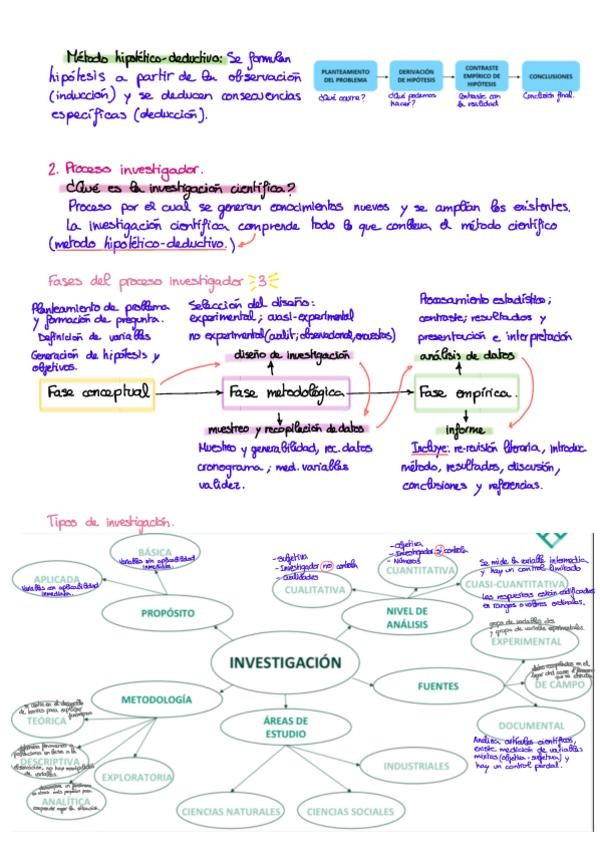 Método hipotético-deductivo: Se formulan
hipótesis a partir de la observación
(inducción) y se deducen consecuencias
específicas (deducción).
PLANTEAMIENTO DEL PROBLEMA
DERIVACIÓN DE HIPÓTESIS
CONTRASTE EMPÍRICO DE HIPÓTESIS
CONCLUSIONES
¿Qué ocurre?
¿Qué podemos hacer?
Contraste con la realidad
Conclusión final.
2. Proceso investigador.
¿Qué es la investigación científica?
Proceso por el cual se generan conocimientos nuevos y se amplían los existentes.
La investigación científica comprende todo lo que conlleva el método científico
(metodo hipotético-deductivo.)
Fases del proceso investigador 3
Planteamiento de problema
y formación de pregunta.
Definición de variables
Generación de hipótesis y
objetivos.
Selección del diseño:
experimental; cuasi-experimental
no experimental (cualit; observacional, encuestas)
Procesamiento estadístico;
contraste; resultados y
presentación e interpretación
diseño de investigación
análisis de datos
Fase conceptual
Fase metodológica
Fase empírica.
muestreo y recopilación de datos
informe
Muestreo y generabilidad, rec. datos
cronograma; med. variables
validez.
Incluye: re-revisión literaria, introducc.
método, resultados, discusión,
conclusiones y referencias.
Tipos de investigación.
BÁSICA
Variables sin aplicabilidad
inmediata.
APLICADA
Variables con aplicabilidad
inmediata.
PROPÓSITO
- subjetiva
- Investigador no controla
- cualidades
CUALITATIVA
- objetiva
- Investigador si controla
- Números
CUANTITATIVA
Se mide la variable intermedia
y hay un control limitado
CUASI-CUANTITATIVA
Las respuestas están codificadas
en rangos o valores ordinales.
NIVEL DE ANÁLISIS
grupo de variable dos
y grupo de variable experimentales.
EXPERIMENTAL
INVESTIGACIÓN
FUENTES
DE CAMPO
DOCUMENTAL
Analiza artículos científicos,
existe medición de variables
mixtas (objetiva-subjetiva) y
hay un control parcial.
METODOLOGÍA
TEÓRICA
DESCRIPTIVA
ANALÍTICA
EXPLORATORIA
ÁREAS DE ESTUDIO
INDUSTRIALES
CIENCIAS NATURALES
CIENCIAS SOCIALES